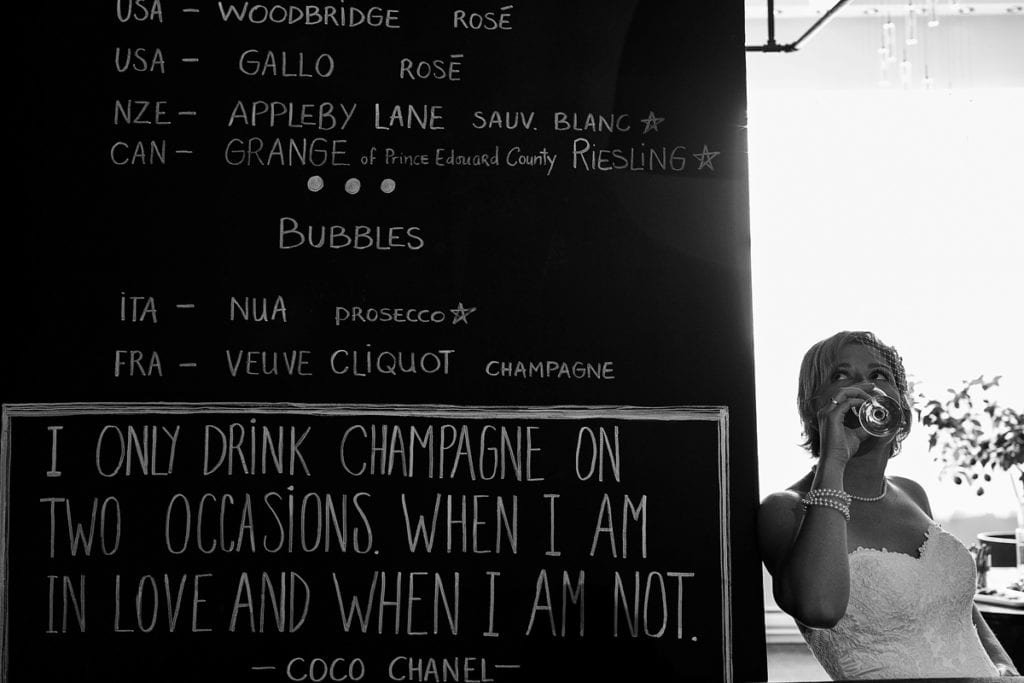 USA - WOODBRIDGE ROSÉ
USA - GALLO ROSÉ
NZE - APPLEBY LANE SAUV. BLANC ☆
CAN - GRANGE of Prince Edouard County RIESLING ☆
BUBBLES
ITA - NUA PROSECCO ☆
FRA - VEUVE CLIQUOT CHAMPAGNE
I ONLY DRINK CHAMPAGNE ON
TWO OCCASIONS. WHEN I AM
IN LOVE AND WHEN I AM NOT.
- COCO CHANEL -